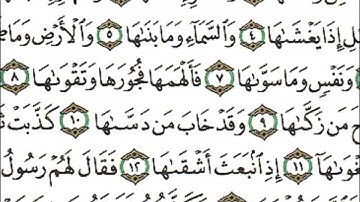 إِذَا يَغْشَىٰهَا ٤ وَٱلسَّمَآءِ وَمَا بَنَىٰهَا ٥ وَٱلْأَرْضِ وَمَا
وَنَفْسٍ وَمَا سَوَّىٰهَا ٧ فَأَلْهَمَهَا فُجُورَهَا وَتَقْوَىٰهَا ٨
مَن زَكَّىٰهَا ٩ وَقَدْ خَابَ مَن دَسَّىٰهَا ١٠ كَذَّبَتْ
١١ إِذِ ٱنۢبَعَثَ أَشْقَىٰهَا ١٢ فَقَالَ لَهُمْ رَسُولُ